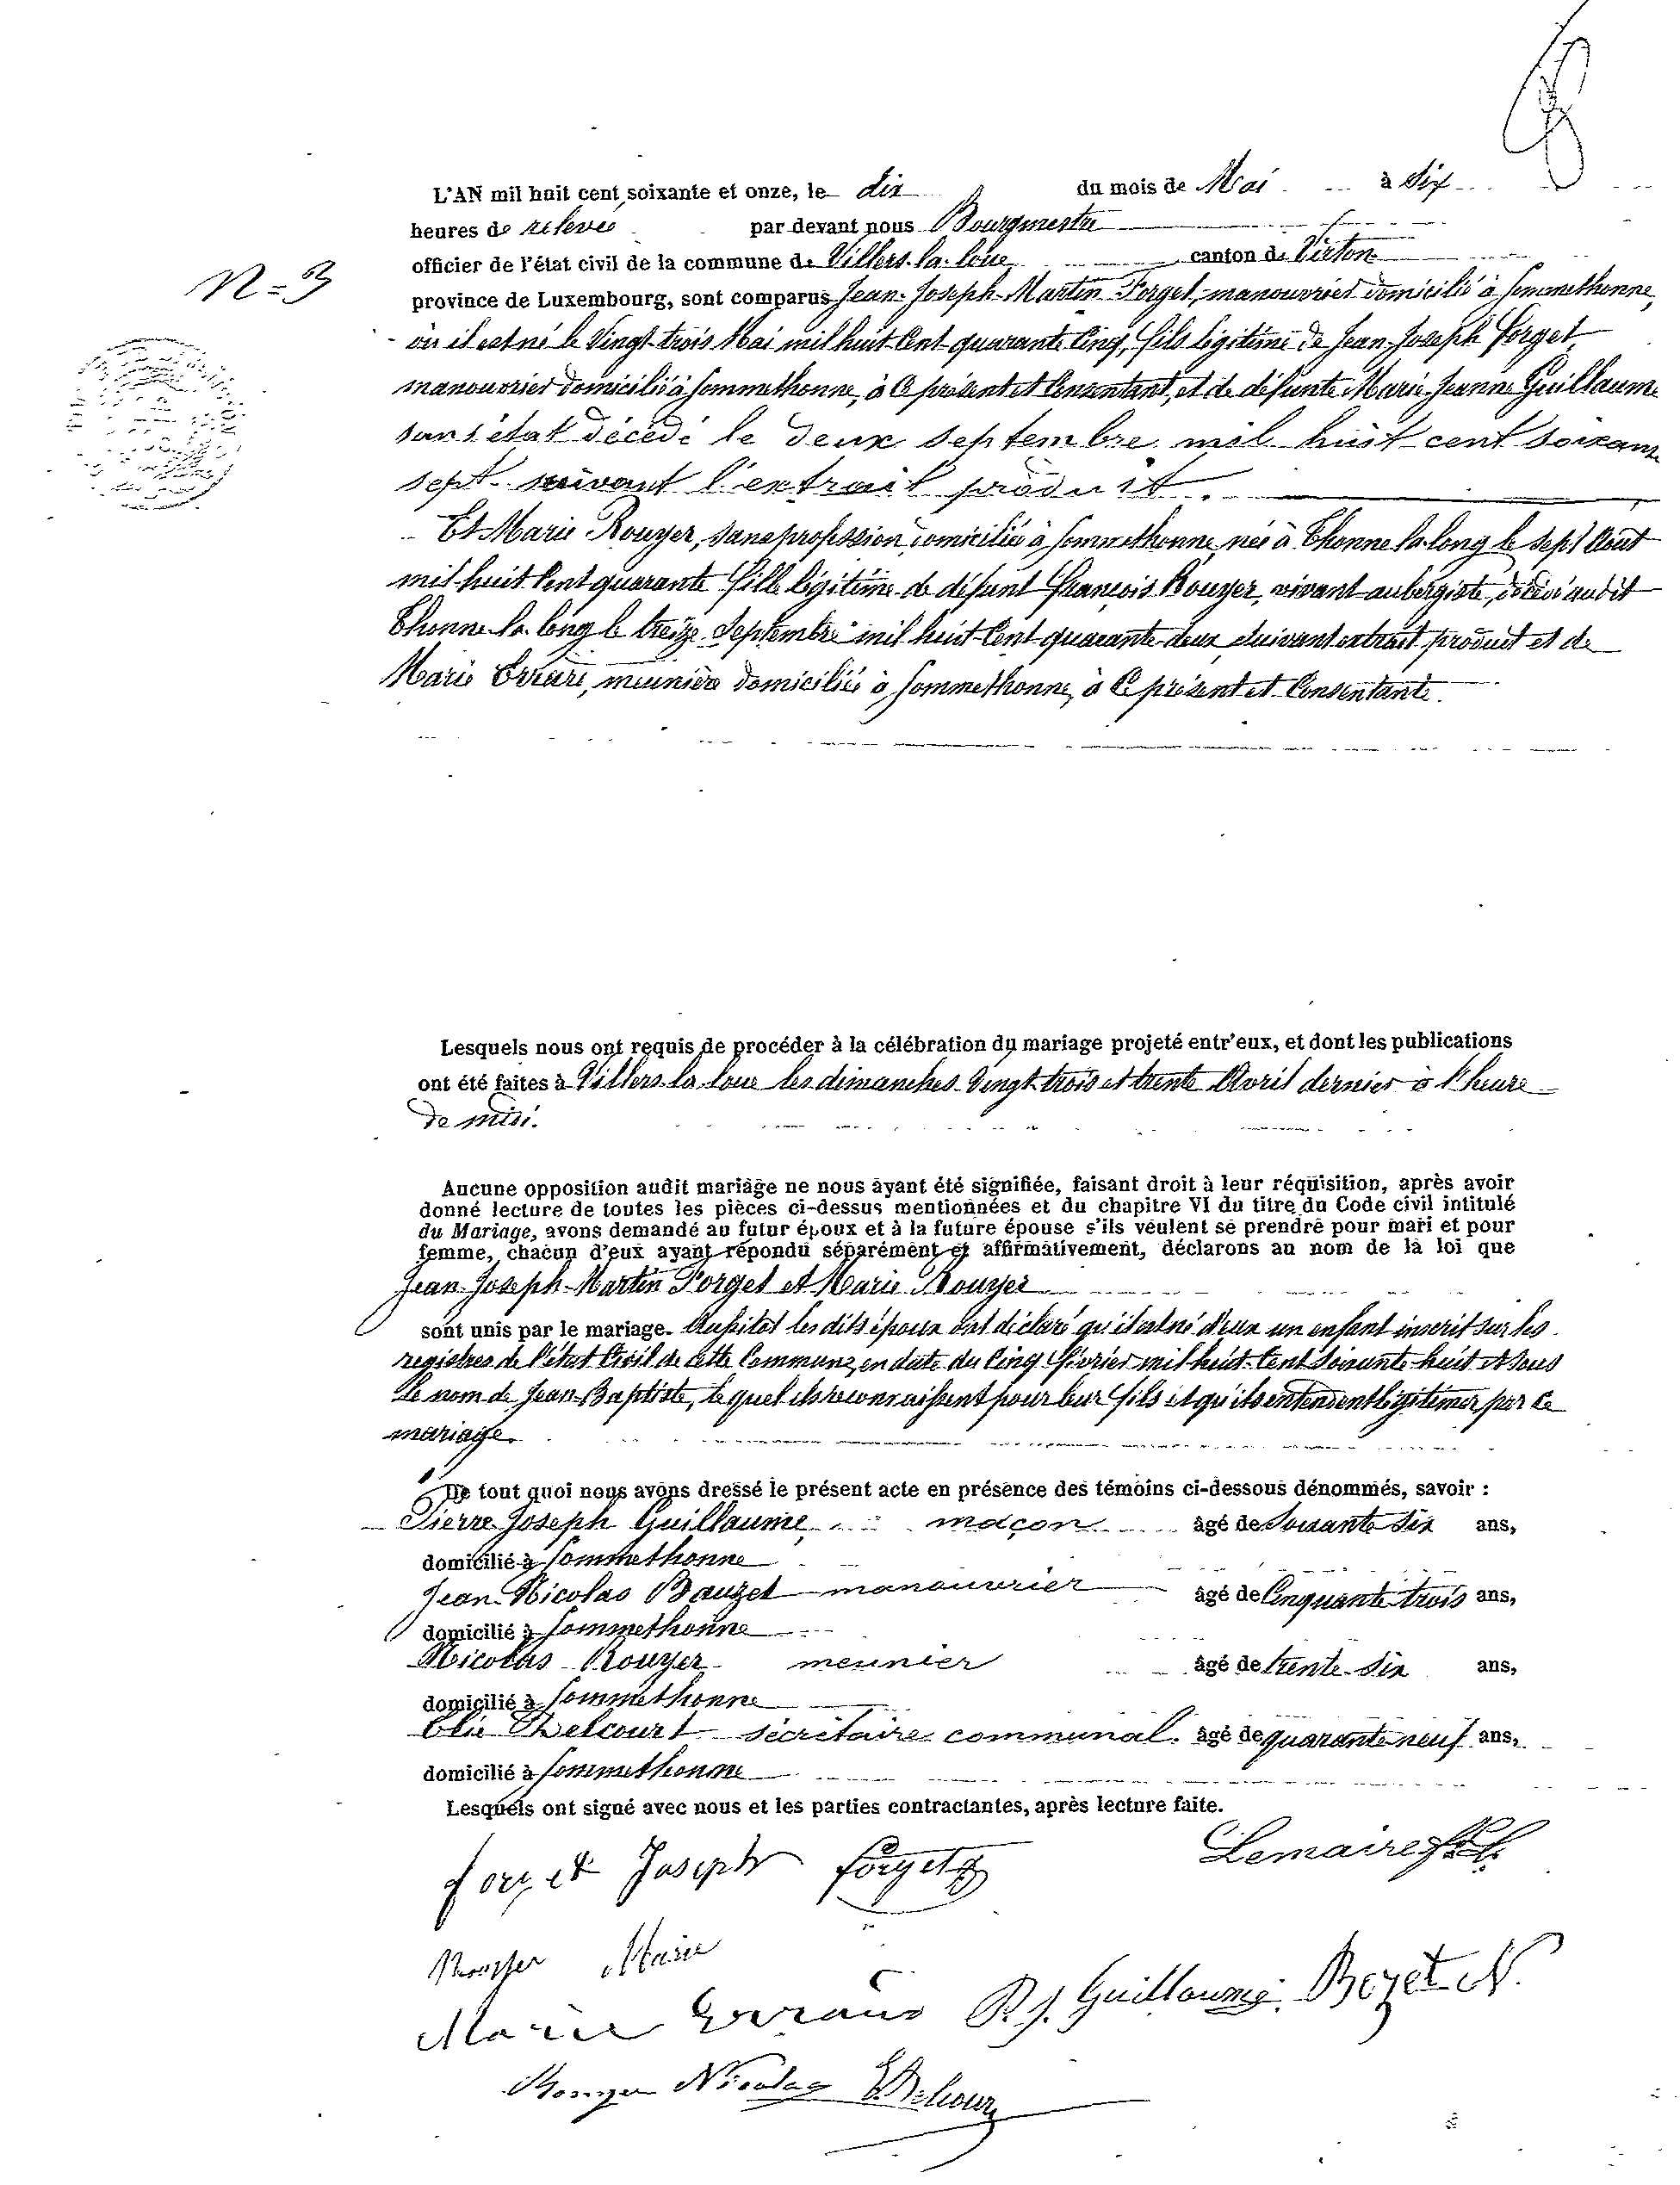 L'AN mil huit cent soixante et onze, le dix du mois de Mai à Six
heures de relevée par devant nous Bourgmestre
officier de l'état civil de la commune de Villers-la-loue canton de Virton
N=3
province de Luxembourg, sont comparus Jean-Joseph-Martin Forget, manouvrier domicilié à Sommethonne,
où il est né le Vingt-trois Mai mil huit Cent quarante Cinq, fils légitime de Jean-Joseph Forget
manouvrier domicilié à Sommethonne, à Ce présent et Consentant, et de défunte Marie-Jeanne Guillaume
sans état décédé le deux septembre mil huit cent soixante
sept suivant l'extrait produit.
Et Marie Rouyer, sans profession domiciliée à Sommethonne, née à Thonne-la-long le Sept Août
mil huit Cent quarante fille légitime de défunt François Rouyer, vivant aubergiste, décédé audit
Thonne-la-long le treize Septembre mil huit-Cent quarante-deux suivant extrait produit et de
Marie Errard, meunière domiciliée à Sommethonne, à Ce présent et Consentante.
Lesquels nous ont requis de procéder à la célébration du mariage projeté entr'eux, et dont les publications
ont été faites à Villers-la-loue les dimanches Vingt-trois et trente Avril dernier à l'heure
de midi.
Aucune opposition audit mariage ne nous ayant été signifiée, faisant droit à leur réquisition, après avoir
donné lecture de toutes les pièces ci-dessus mentionnées et du chapitre VI du titre du Code civil intitulé
du Mariage, avons demandé au futur époux et à la future épouse s'ils veulent se prendre pour mari et pour
femme, chacun d'eux ayant répondu séparément et affirmativement, déclarons au nom de la loi que
Jean-Joseph-Martin Forget et Marie Rouyer
sont unis par le mariage. Aussitot les dits époux ont déclaré qu'il est né d'eux un enfant inscrit sur les
registres de l'état Civil de cette Commune, en date du Cinq février mil huit-Cent Soixante-huit et sous
Le nom de Jean-Baptiste, lequel ils reconnaissent pour leur fils et qu'ils entendent légitimer par le
mariage.
De tout quoi nous avons dressé le présent acte en présence des témoins ci-dessous dénommés, savoir :
Pierre-Joseph Guillaume, maçon âgé de Soixante Six ans,
domicilié à Sommethonne
Jean-Nicolas Bauzet manouvrier âgé de Cinquante-trois ans,
domicilié à Sommethonne
Nicolas Rouyer meunier âgé de trente-Six ans,
domicilié à Sommethonne
Elie Delcourt secrétaire communal. âgé de quarante neuf ans,
domicilié à Sommethonne
Lesquels ont signé avec nous et les parties contractantes, après lecture faite.
forget Joseph forget Lemaire
Rouyer Marie
Marie Errard P. J. Guillaume. Bozet N.
Rouyer Nicolas E. Delcourt